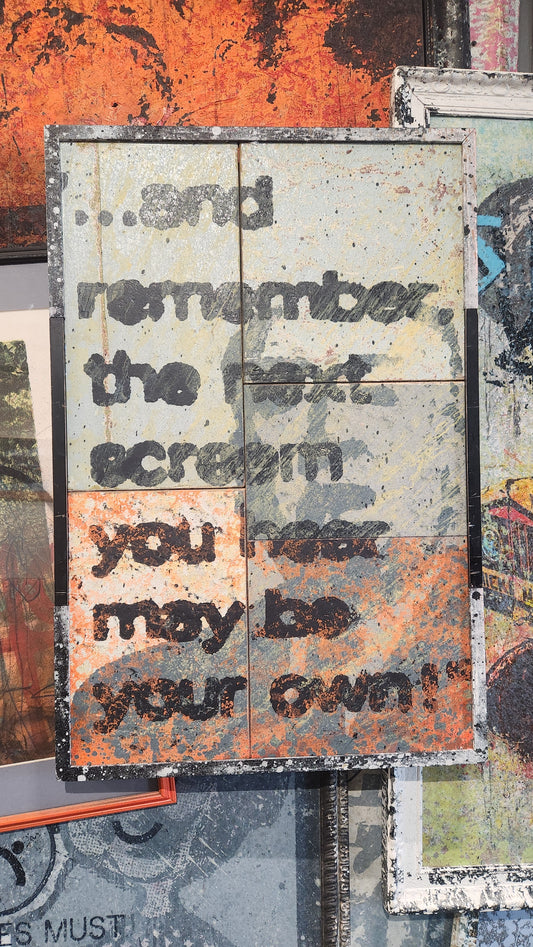 "...and
remember,
the next
scream
you hear
may be
your own!"
ES MUST